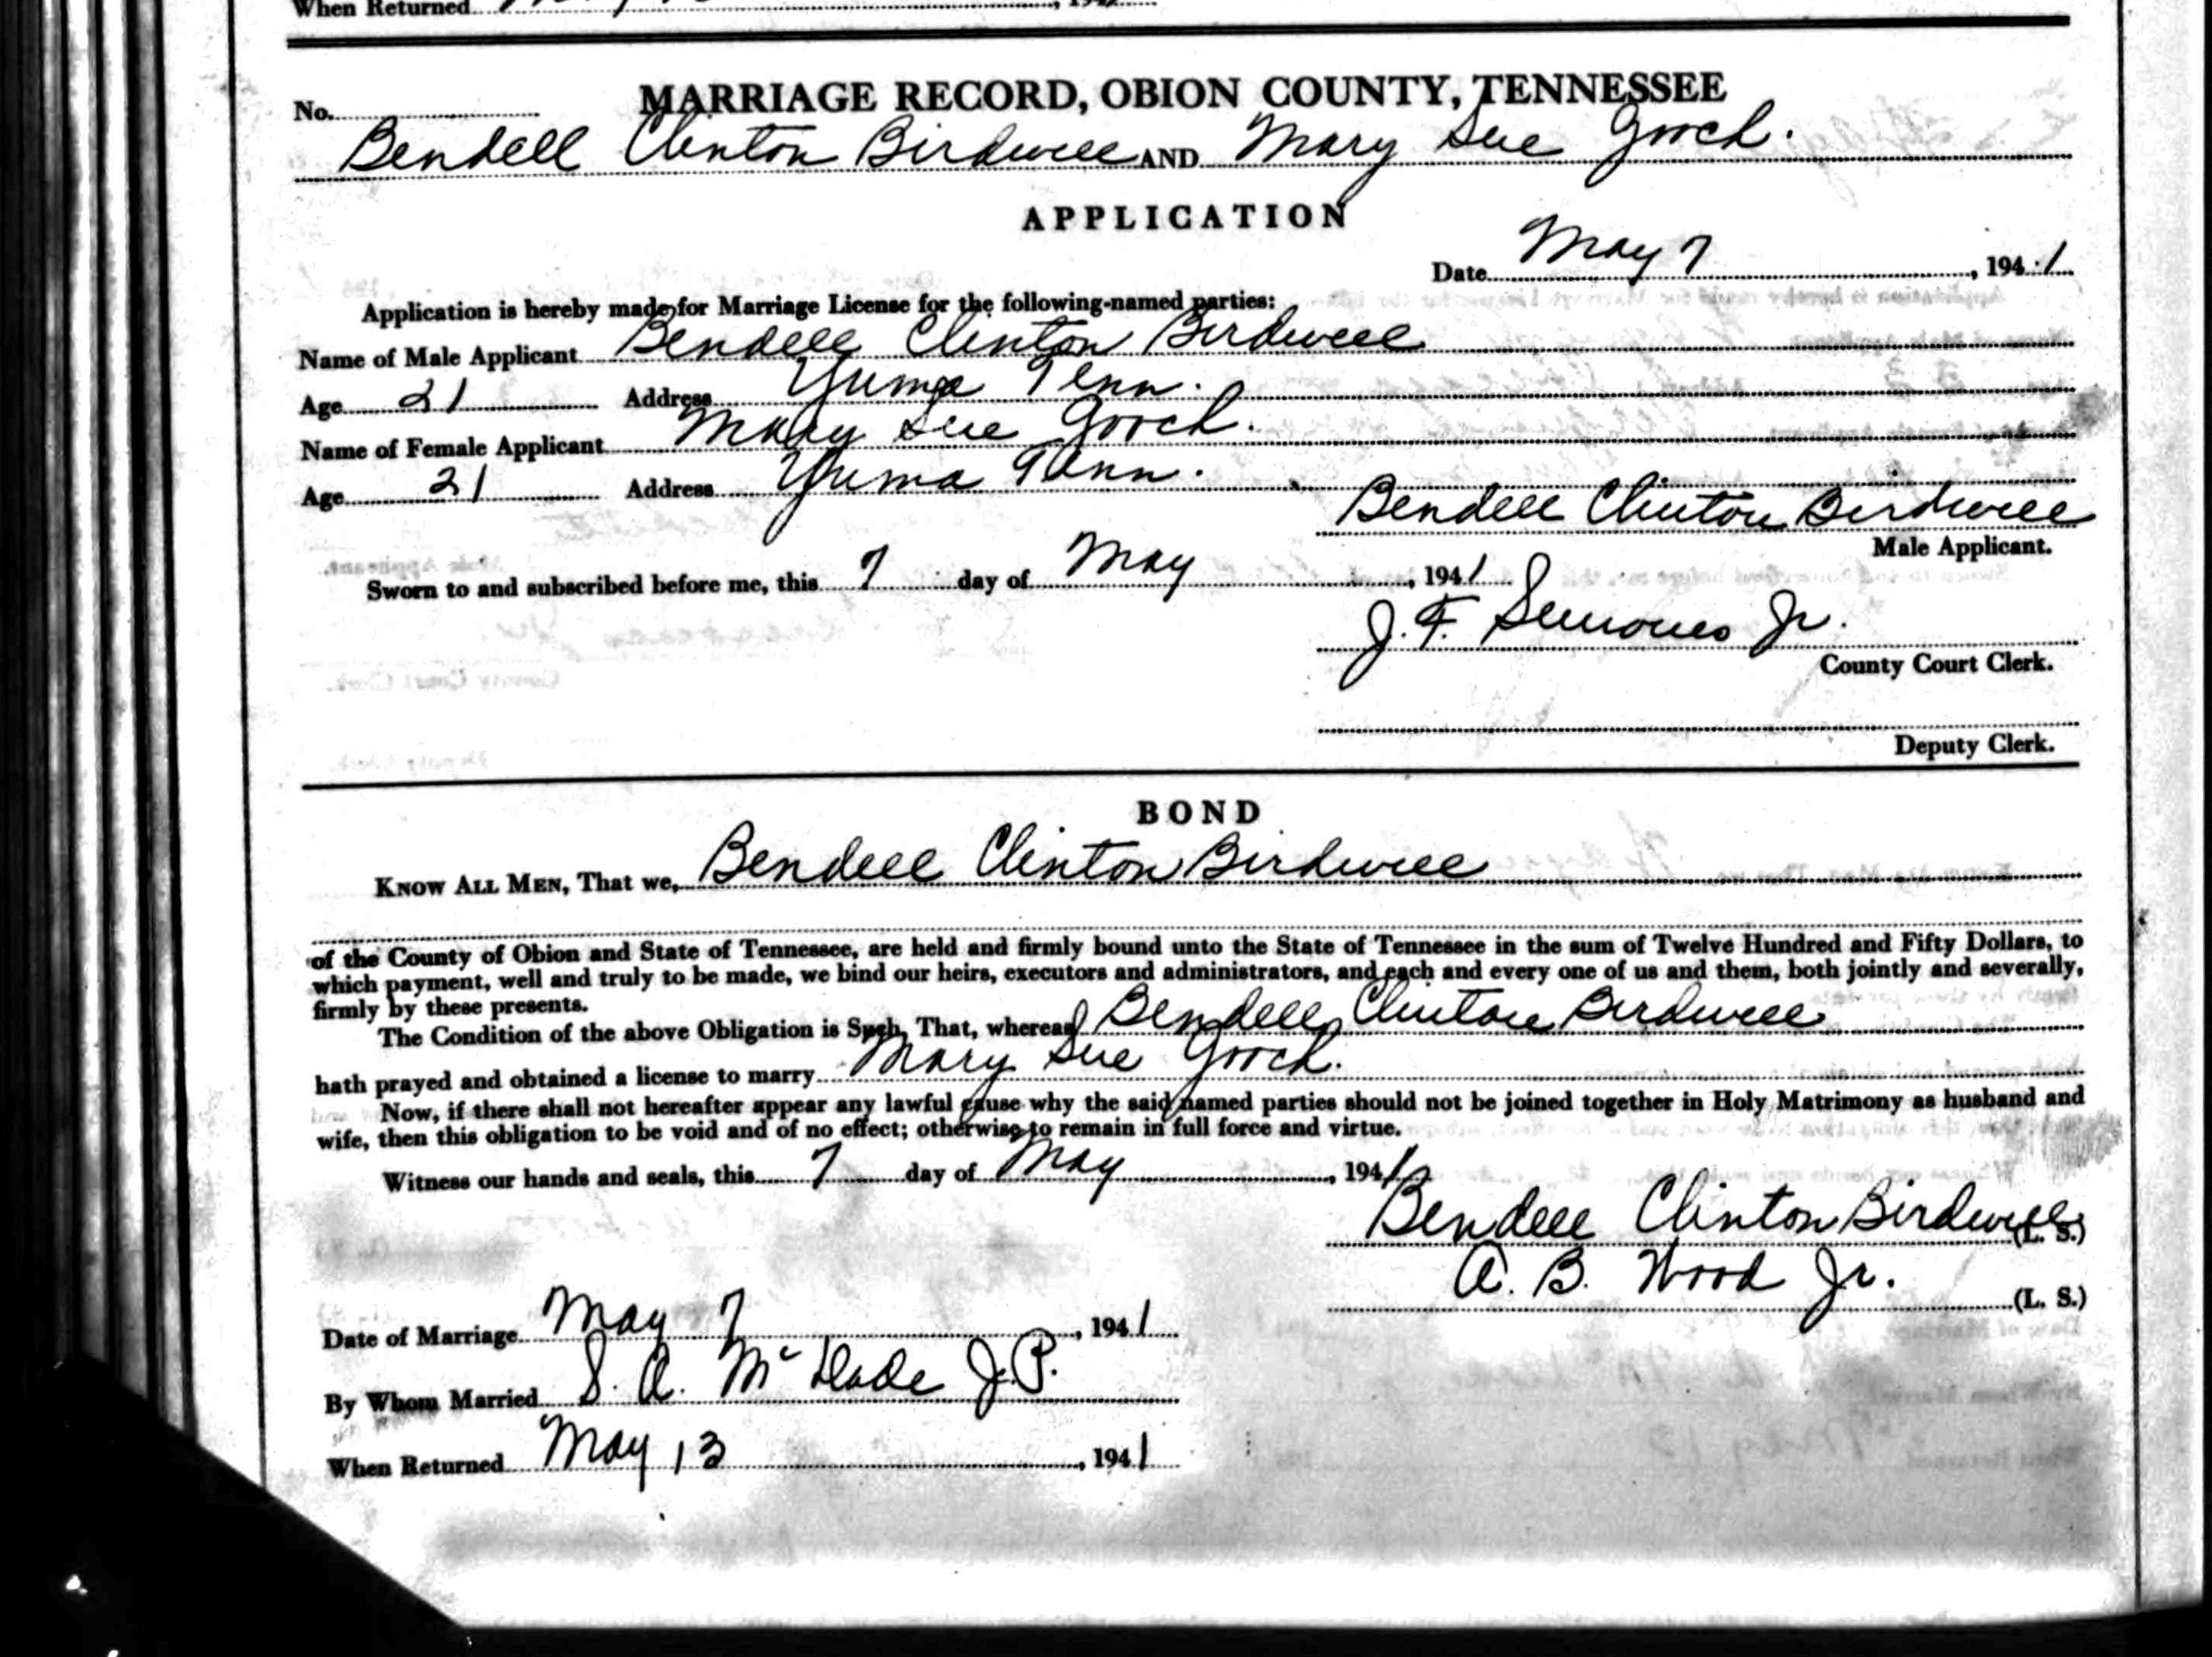 When Returned
MARRIAGE RECORD, OBION COUNTY, TENNESSEE
No.
Bendell Clinton Birdwell AND Mary Sue Gooch.
APPLICATION
Date May 7, 194 1
Application is hereby made for Marriage License for the following-named parties:
Name of Male Applicant Bendell Clinton Birdwell
Age 21 Address Yuma Tenn.
Name of Female Applicant Mary Sue Gooch.
Age 21 Address Yuma Tenn.
Bendell Clinton Birdwell
Male Applicant.
Sworn to and subscribed before me, this 7 day of May, 194 1
J. F. Semones Jr.
County Court Clerk.
Deputy Clerk.
BOND
KNOW ALL MEN, That we, Bendell Clinton Birdwell
of the County of Obion and State of Tennessee, are held and firmly bound unto the State of Tennessee in the sum of Twelve Hundred and Fifty Dollars, to
which payment, well and truly to be made, we bind our heirs, executors and administrators, and each and every one of us and them, both jointly and severally,
firmly by these presents.
The Condition of the above Obligation is Such, That, whereas, Bendell Clinton Birdwell
hath prayed and obtained a license to marry Mary Sue Gooch.
Now, if there shall not hereafter appear any lawful cause why the said named parties should not be joined together in Holy Matrimony as husband and
wife, then this obligation to be void and of no effect; otherwise to remain in full force and virtue.
Witness our hands and seals, this 7 day of May, 194 1
Bendell Clinton Birdwell (L. S.)
A. B. Wood Jr. (L. S.)
Date of Marriage May 7, 194 1
By Whom Married S. A. McDade J.P.
When Returned May 13, 194 1